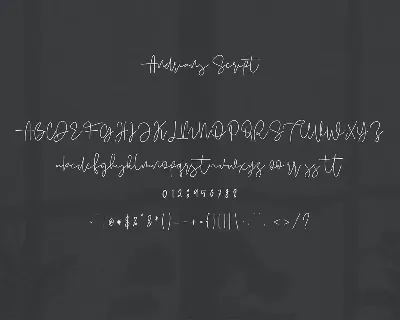 Andreany Script
ABCDEFGHIJKLMNOPQRSTUVWXYZ
abcdefghijklmnopqrstuvwxyz oo rr ss tt
0123456789
@#$%^&*()_-+={}[]|\:;"'<>/?